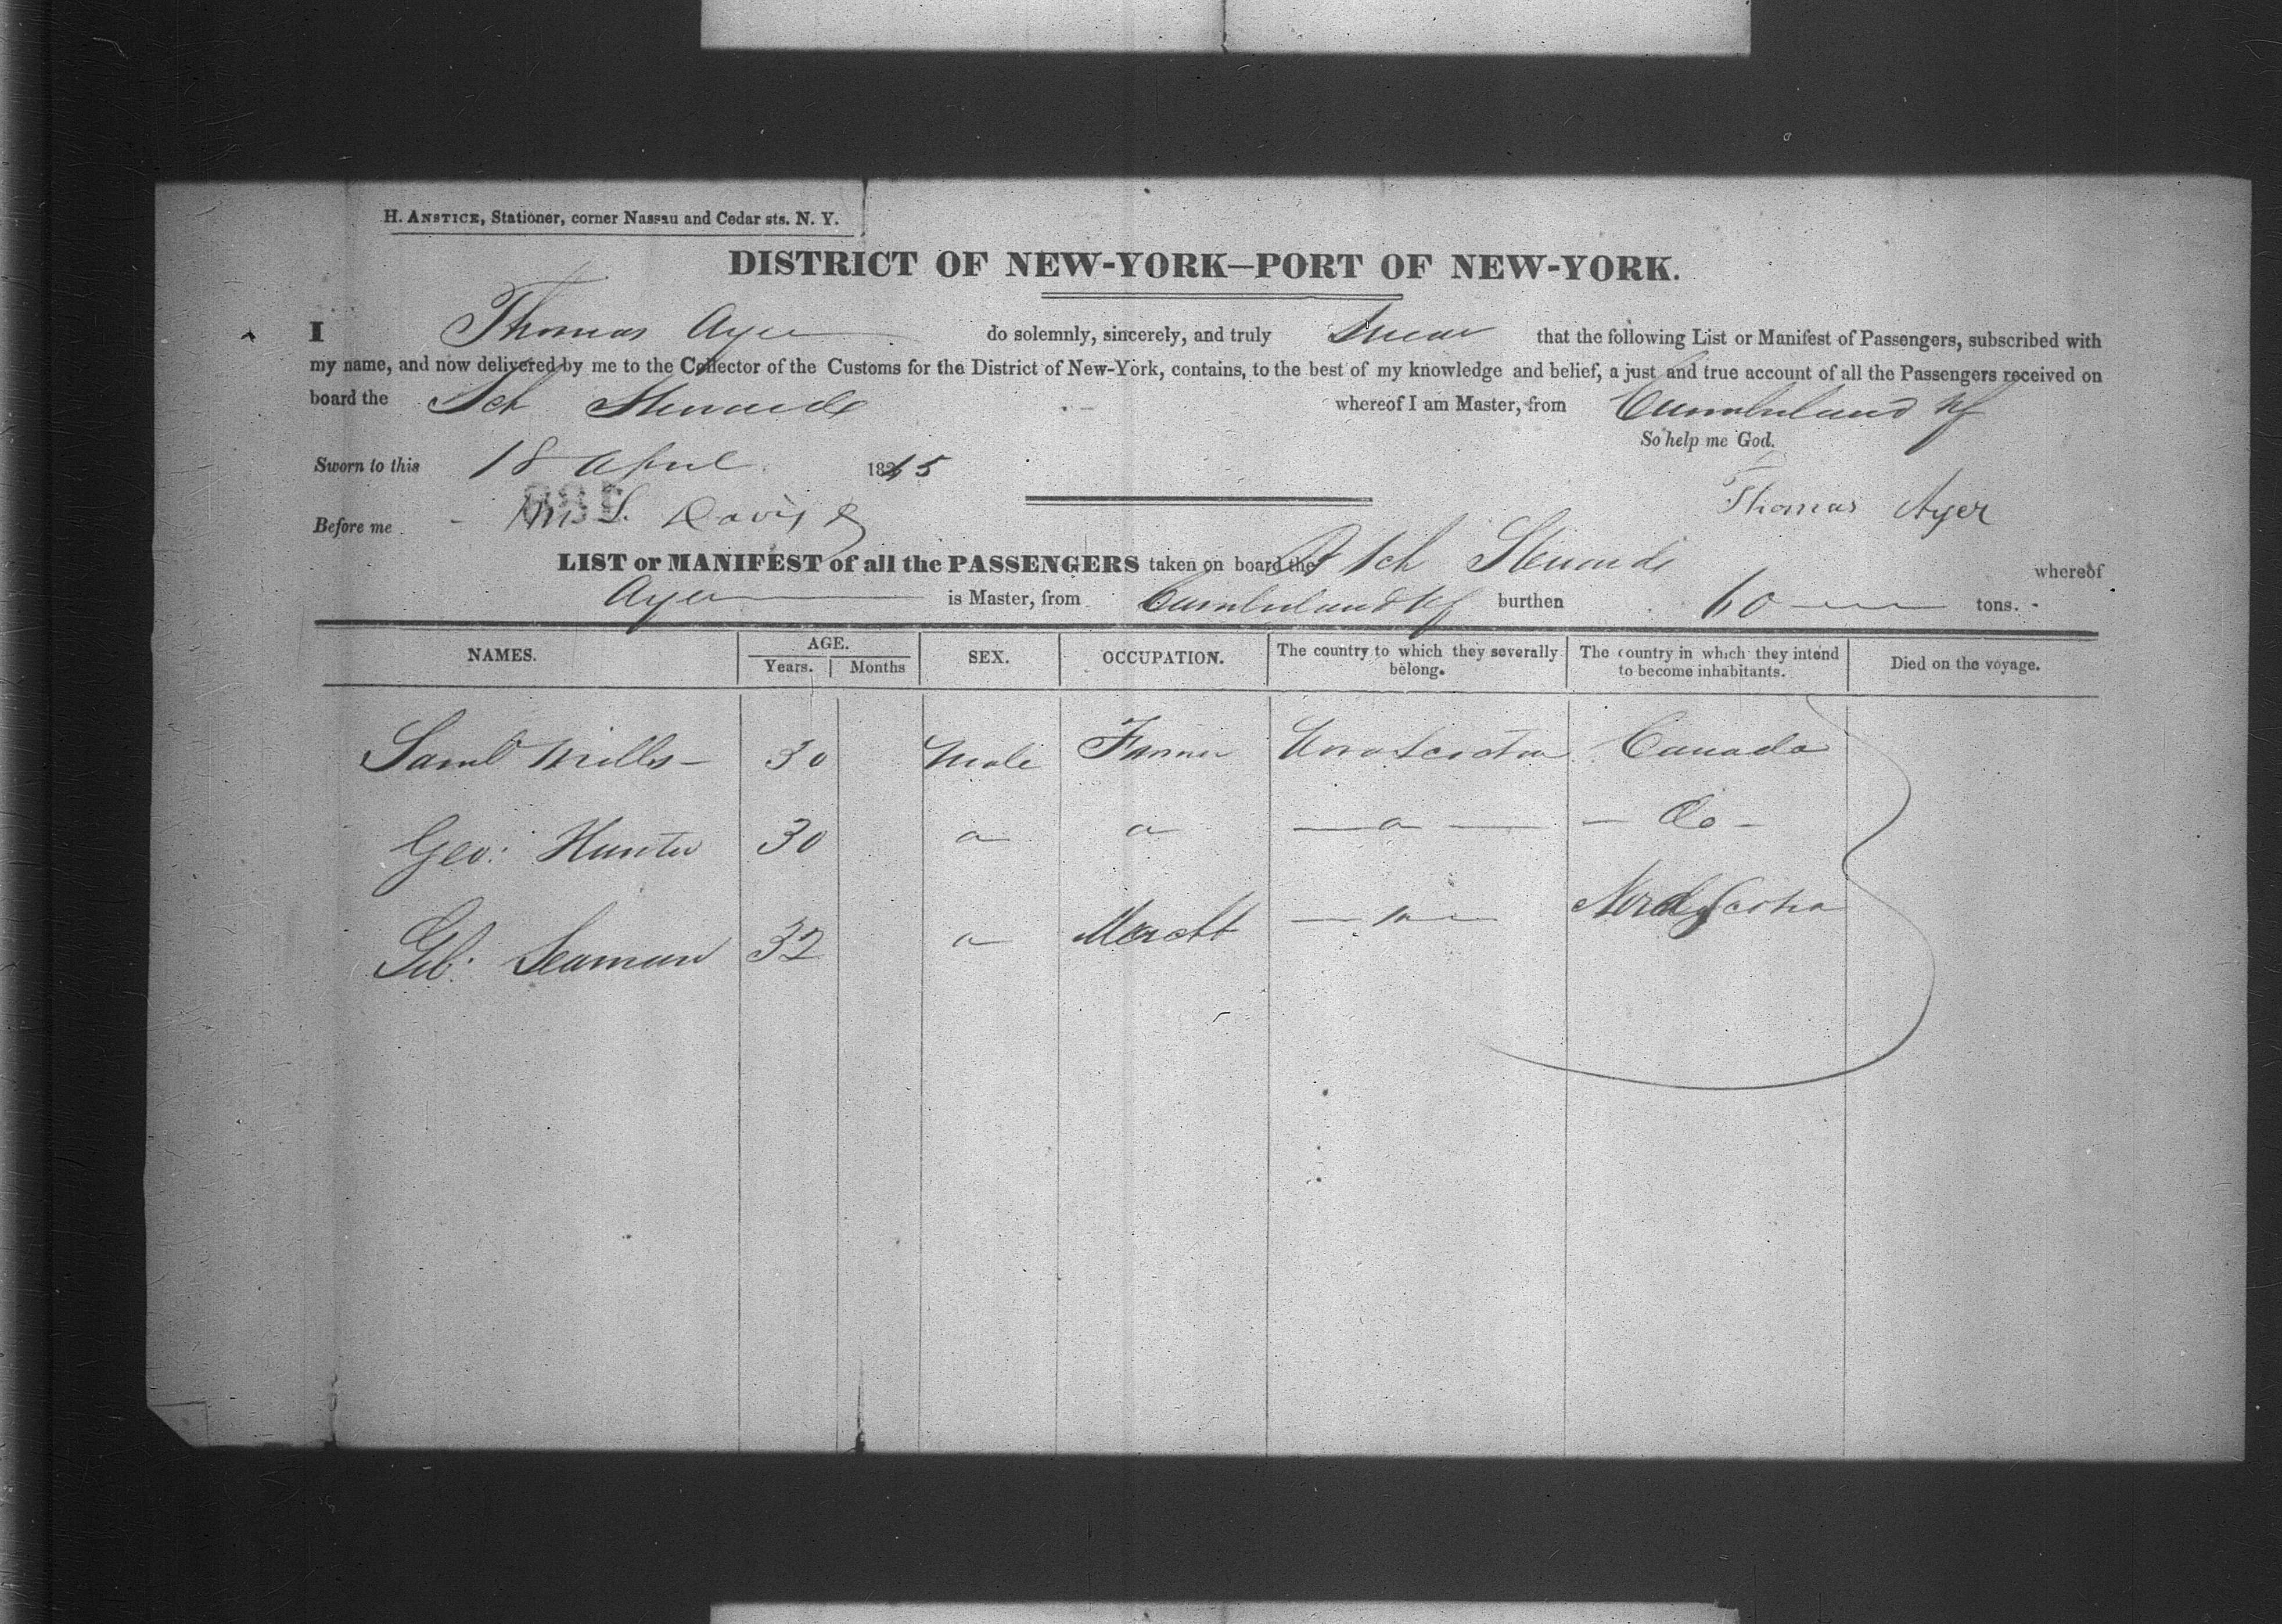 H. ANSTICE, Stationer, corner Nassau and Cedar sts. N. Y.
DISTRICT OF NEW-YORK—PORT OF NEW-YORK.
I Thomas Ayer do solemnly, sincerely, and truly Swear that the following List or Manifest of Passengers, subscribed with
my name, and now delivered by me to the Collector of the Customs for the District of New-York, contains, to the best of my knowledge and belief, a just and true account of all the Passengers received on
board the Sch whereof I am Master, from Cumberland NS
So help me God.
Sworn to this 18 April 1845
Thomas Ayer
Before me Davis
LIST or MANIFEST of all the PASSENGERS taken on board the Sch whereof
Ayer is Master, from Cumberland NS burthen 60 tons.
NAMES. AGE. SEX. OCCUPATION. The country to which they severally belong. The country in which they intend to become inhabitants. Died on the voyage.
Years. Months
Saml Mills 30 Male Farmer Nova Scotia Canada
Geo: Hunter 30 " " — " — — Do —
Gil: Seaman 32 " Marcht — " — Nova Scotia